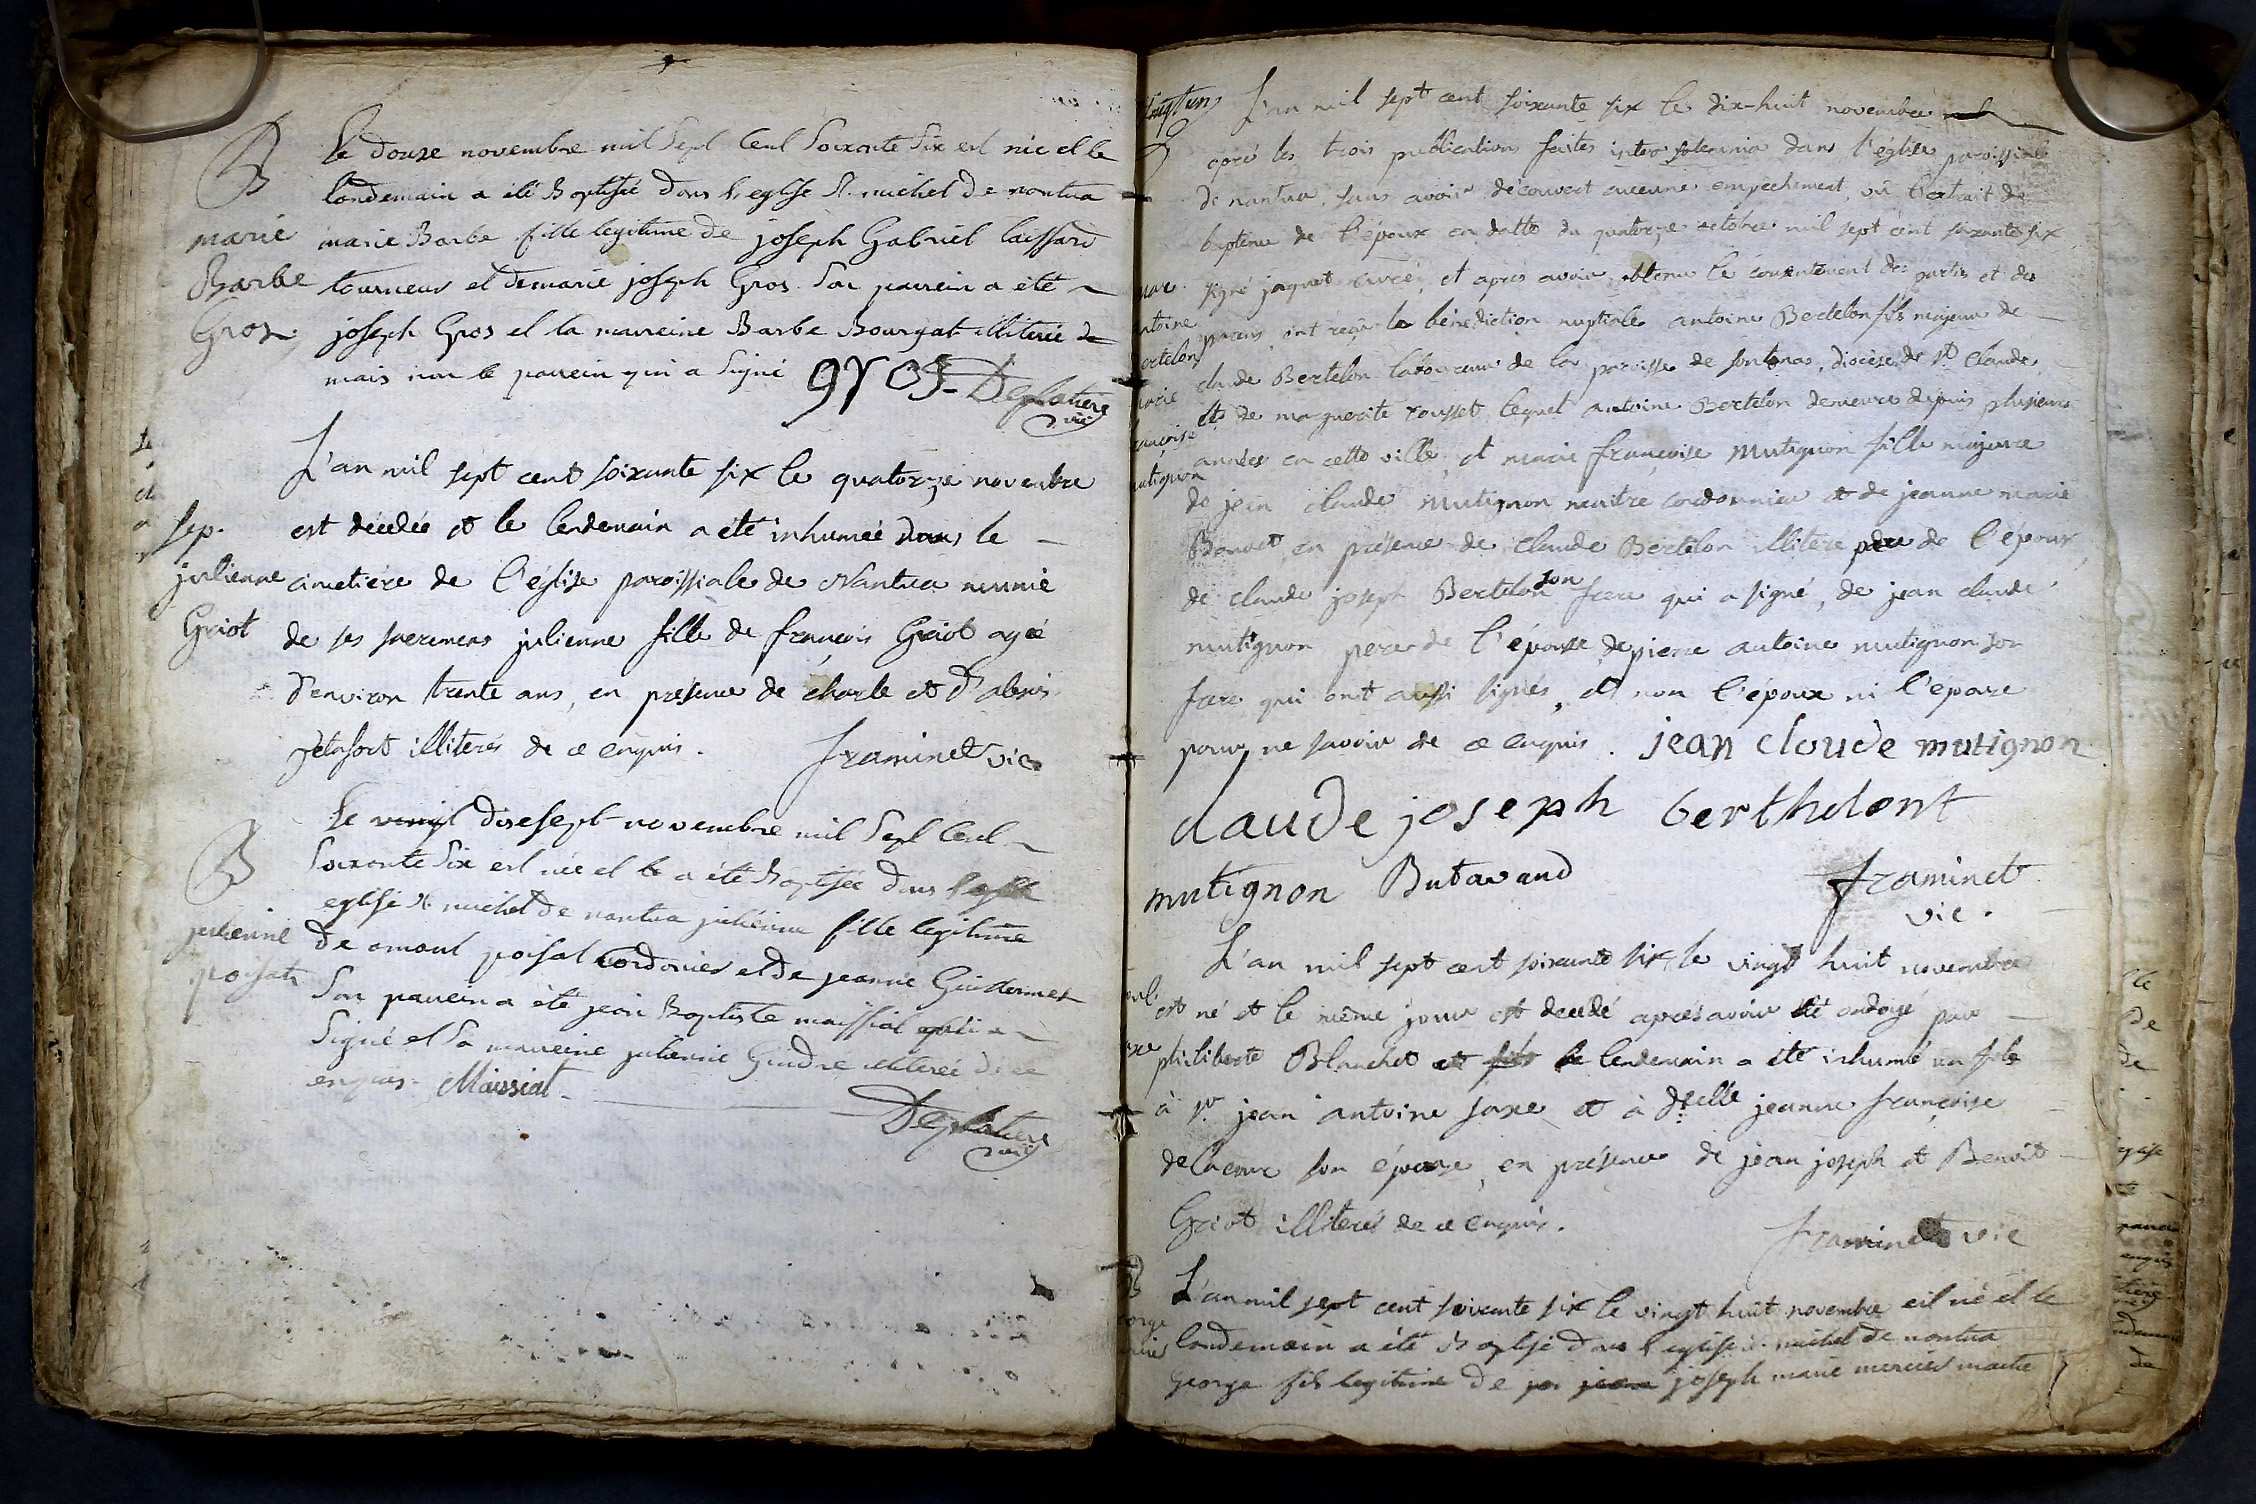 B
marie
Barbe
Gros.
Le douze novembre mil Sept Cent Soixante Six est née et le
landemain a été Baptisée dans l'eglise St. michel de nantua
marie Barbe fille legitime de joseph Gabriel laissard
tourneur et de marie joseph Gros. Son parrein a été
joseph Gros et la marreine Barbe Bourgat illiterée de
mais non le parrein qui a Signé gros Deplatiere
vic
sep.
julienne
Griot
L'an mil sept cent soixante six le quatorze novembre
est décédée et le lendemain a été inhumée dans le
cimetiere de l'église paroissiale de Nantua munie
de ses sacremens julienne fille de françois Griot agée
d'environ trente ans, en presence de charle et d'alexis
illiterés de ce enquis. framinet vic
B
julienne
poisat
Le vingt dixesept novembre mil Sept Cent
Soixante Six est née et le a été Baptisée dans l'eglise
eglise St. michel de nantua julienne fille legitime
de amant poisat Cordonier et de jeanne Guillermet
Son parrein a été jean Baptiste maissiat qui a
Signé et Sa marreine julienne Gindre illiterée de ce
enquis. Maissiat
Deplatiere
vic
L'an mil sept cent soixante six le dix-huit novembre
apré les trois publications faites inter solemnia dans l'église paroissiale
de nantua, sans avoir découvert aucune empêchement, vû l'extrait de
baptême de l'époux en datte du quatorze octobre mil sept cent soixante six
signé jaquet curé, et apres avoir obtenu le consentement des parties et des
parens, ont reçu la bénédiction nuptiale antoine Bertelon fils majeur de
claude Bertelon laboureur de la paroisse de sontonas, diocèse de St. Claude
et de marguerite rousset lequel antoine Bertelon demeure depuis plusieurs
années en cette ville, et marie françoise Mutignon fille majeure
de jean claude Mutignon maitre cordonnier et de jeanne marie
en présence de claude Bertelon illitere pere de l'époux,
de claude joseph Bertelon son frere qui a signé, de jean claude
mutignon pere de l'épouse, de pierre antoine mutignon son
frere qui ont aussi signés, et non l'époux ni l'épouse
pour ne savoir de ce enquis. jean cloude mutignon
claude joseph berthelont
mutignon Butavand framinet
vic.
L'an mil sept cent soixante six le vingt huit novembre
est né et le même jour est decedé aprés avoir été ondoyé par
philiberte Blanchet et fils le lendemain a été inhumé un fils
à sr. jean antoine saxe et à delle jeanne françoise
delacour son épouse, en présence de jean joseph et Benoit
Griot illiterés de ce enquis. framinet vic
L'an mil sept cent soixante six le vingt huit novembre est né et le
landemain a été Baptisé dans l'eglise St. michel de nantua
George fils legitime de joseph marie mercier maitre